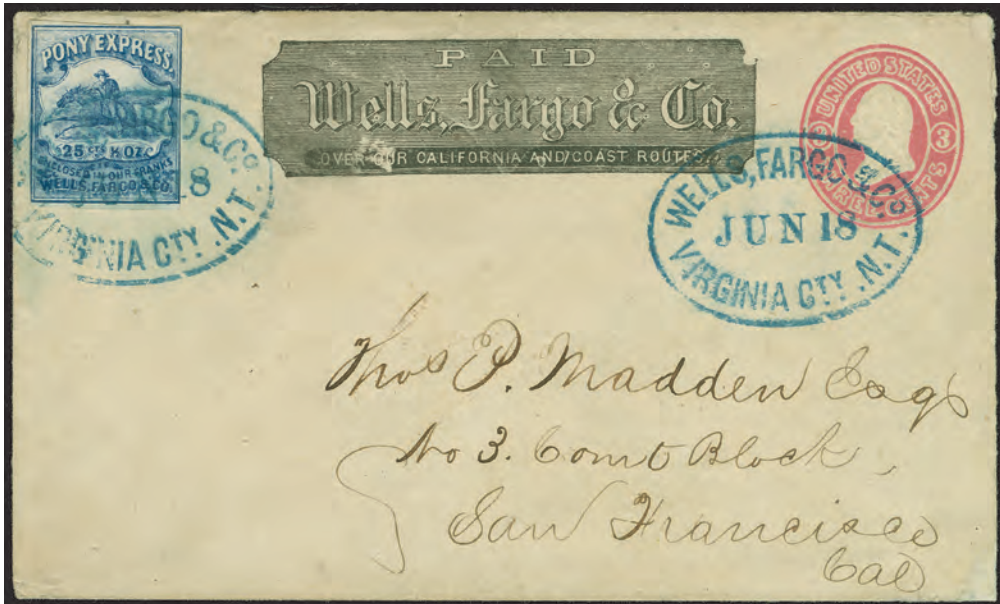 PONY EXPRESS.
25 CTS ½ OZ.
ENCLOSED IN OUR FRANKS
WELLS, FARGO & CO.
FARGO & Co.
18
VIRGINIA CTY. N.T.
PAID
Wells, Fargo & Co.
OVER OUR CALIFORNIA AND COAST ROUTES.
UNITED STATES
3 3
THREE CENTS
WELLS, FARGO & Co.
JUN 18
VIRGINIA CTY. N.T.
Thos P. Madden Esqr
No 3. Court Block,
San Francisco
Cal